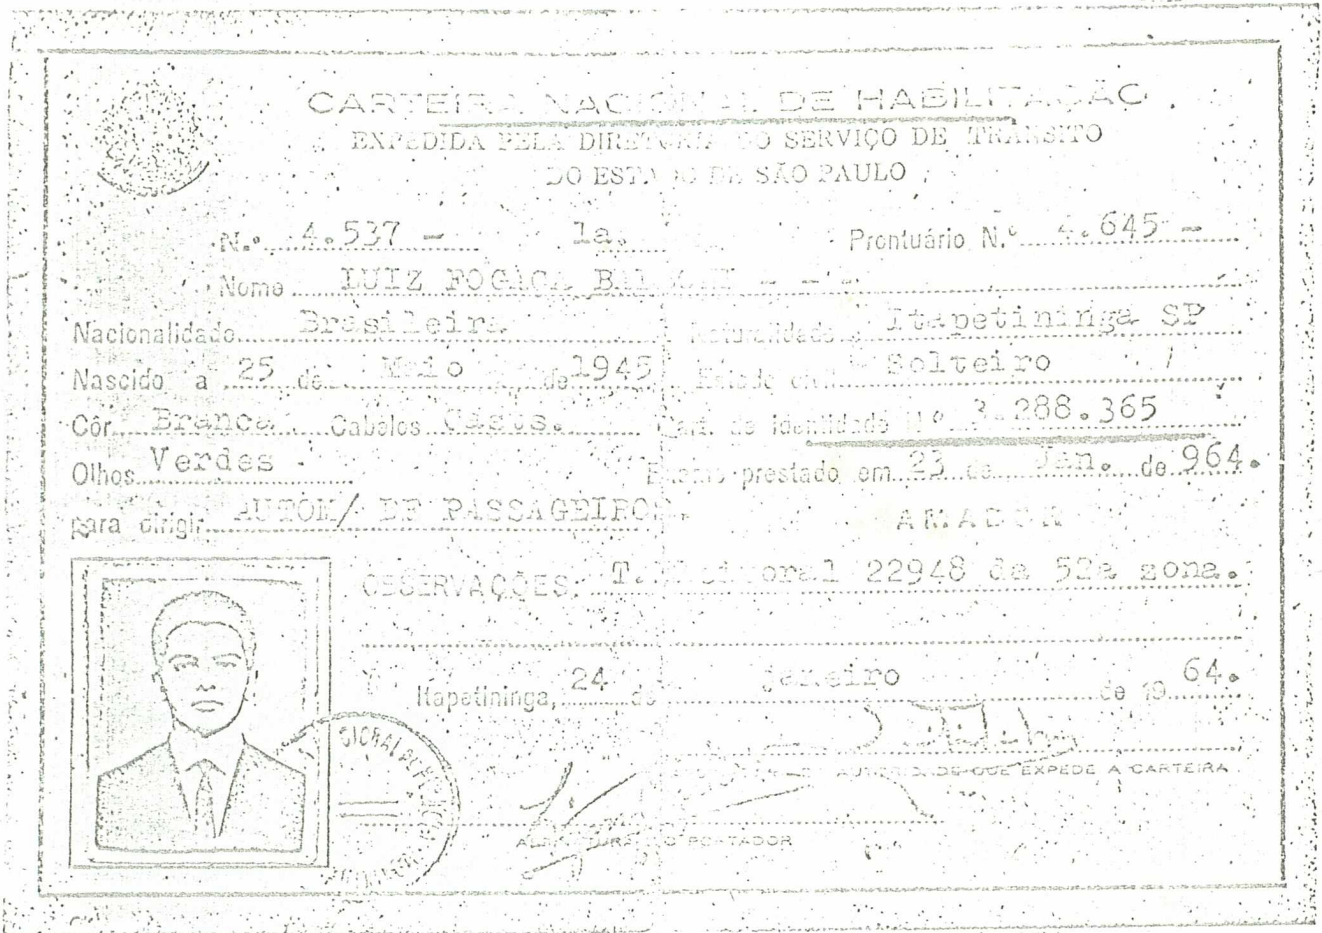 CARTEIRA NACIONAL DE HABILITAÇÃO
EXPEDIDA PELA DIRETORIA DO SERVIÇO DE TRÂNSITO
DO ESTADO DE SÃO PAULO
N.º 4.537 - 1a. Prontuário N.º 4.645 -
Nome LUIZ FOGAÇA - - -
Nacionalidade Brasileira Naturalidade Itapetininga SP
Nascido a 25 de Maio de 1945 Estado civil Solteiro
Côr Branca Cabelos Casts. Cart. de identidade N.º 3.288.365
Olhos Verdes Exame prestado em 23 de Jan. de 964.
para dirigir AUTOM/ DE PASSAGEIROS. AMADOR
OBSERVAÇÕES. T. 22948 da 52a zona.
Itapetininga, 24 de janeiro de 19 64.
AUTORIDADE QUE EXPEDE A CARTEIRA
ASSINATURA DO PORTADOR